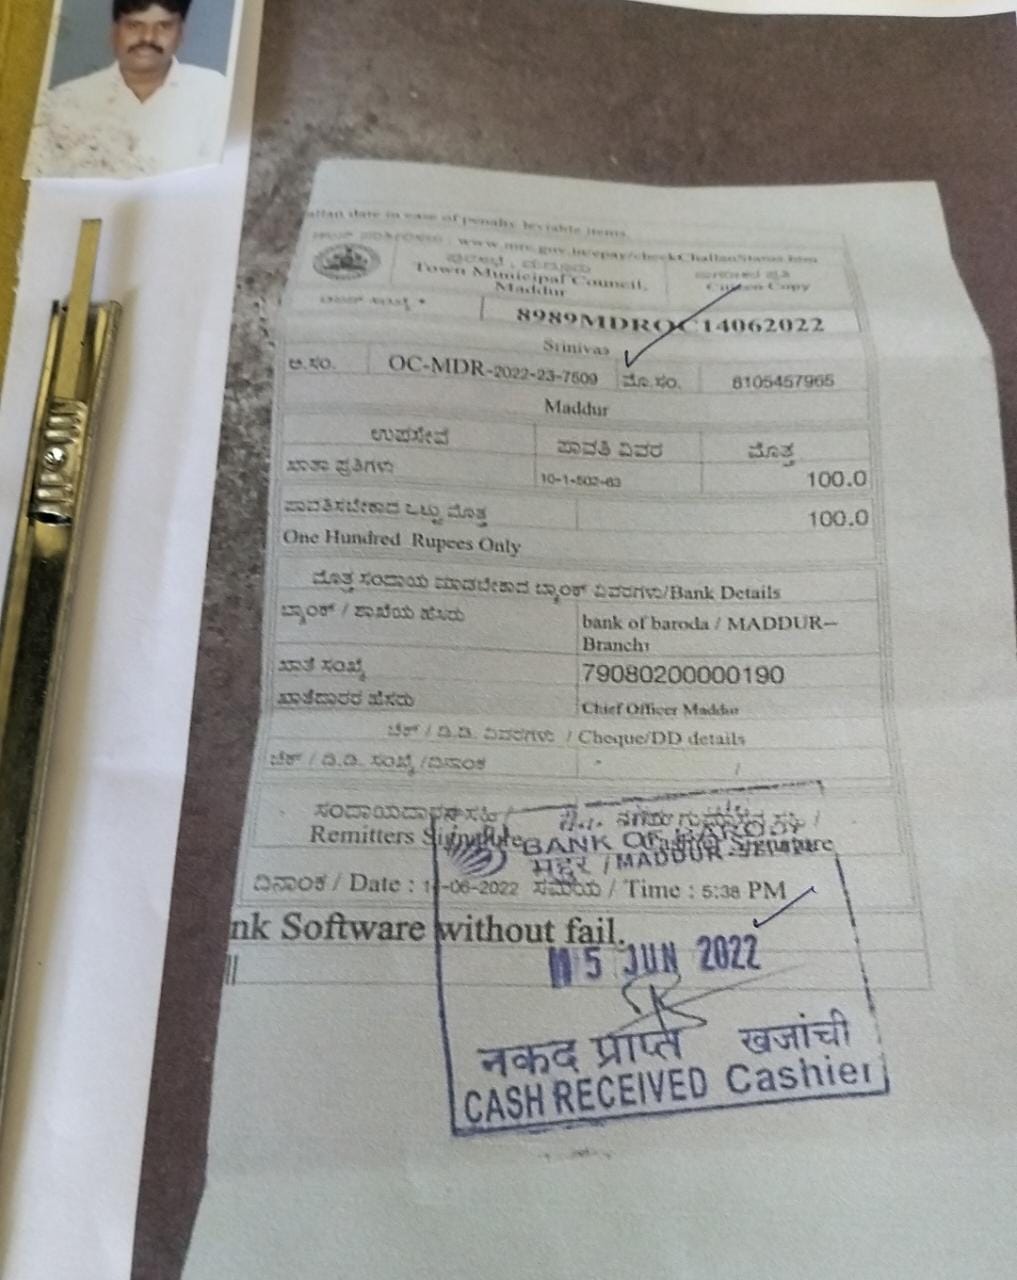 allan date in case of penalty leviable items.
www.mrc.gov.in/epay/checkChallanStatus.htm
Town Municipal Council,
Maddur
Citizen Copy
8989MDROC14062022
Srinivas
ಅ.ಸಂ. OC-MDR-2022-23-7509 ಮೊ.ಸಂ. 8105457965
Maddur
ಉಪಸೇವೆ ಪಾವತಿ ವಿವರ ಮೊತ್ತ
ಖಾತಾ ಪ್ರತಿಗಳು 10-1-502-63 100.0
ಪಾವತಿಸಬೇಕಾದ ಒಟ್ಟು ಮೊತ್ತ 100.0
One Hundred Rupees Only
ಮೊತ್ತ ಸಂದಾಯ ಮಾಡಬೇಕಾದ ಬ್ಯಾಂಕ್ ವಿವರಗಳು/Bank Details
ಬ್ಯಾಂಕ್ / ಶಾಖೆಯ ಹೆಸರು bank of baroda / MADDUR--
Branch1
ಖಾತೆ ಸಂಖ್ಯೆ 79080200000190
ಖಾತೆದಾರರ ಹೆಸರು Chief Officer Maddur
ಚೆಕ್ / ಡಿ.ಡಿ. ವಿವರಗಳು / Cheque/DD details
ಚೆಕ್ / ಡಿ.ಡಿ. ಸಂಖ್ಯೆ /ದಿನಾಂಕ /
ಸಂದಾಯದಾರನ ಸಹಿ /
Remitters Signature Cashier Signature
BANK OF BARODA
मद्दूर /MADDUR
ದಿನಾಂಕ / Date : -06-2022 ಸಮಯ / Time : 5:38 PM
nk Software without fail.
5 JUN 2022
नकद प्राप्त खजांची
CASH RECEIVED Cashier